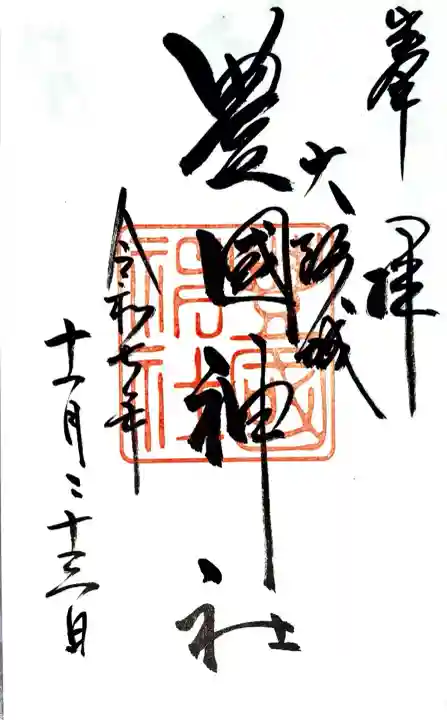 奉拝
大阪城
豊國神社
令和七年
十一月二十三日
豊國神社